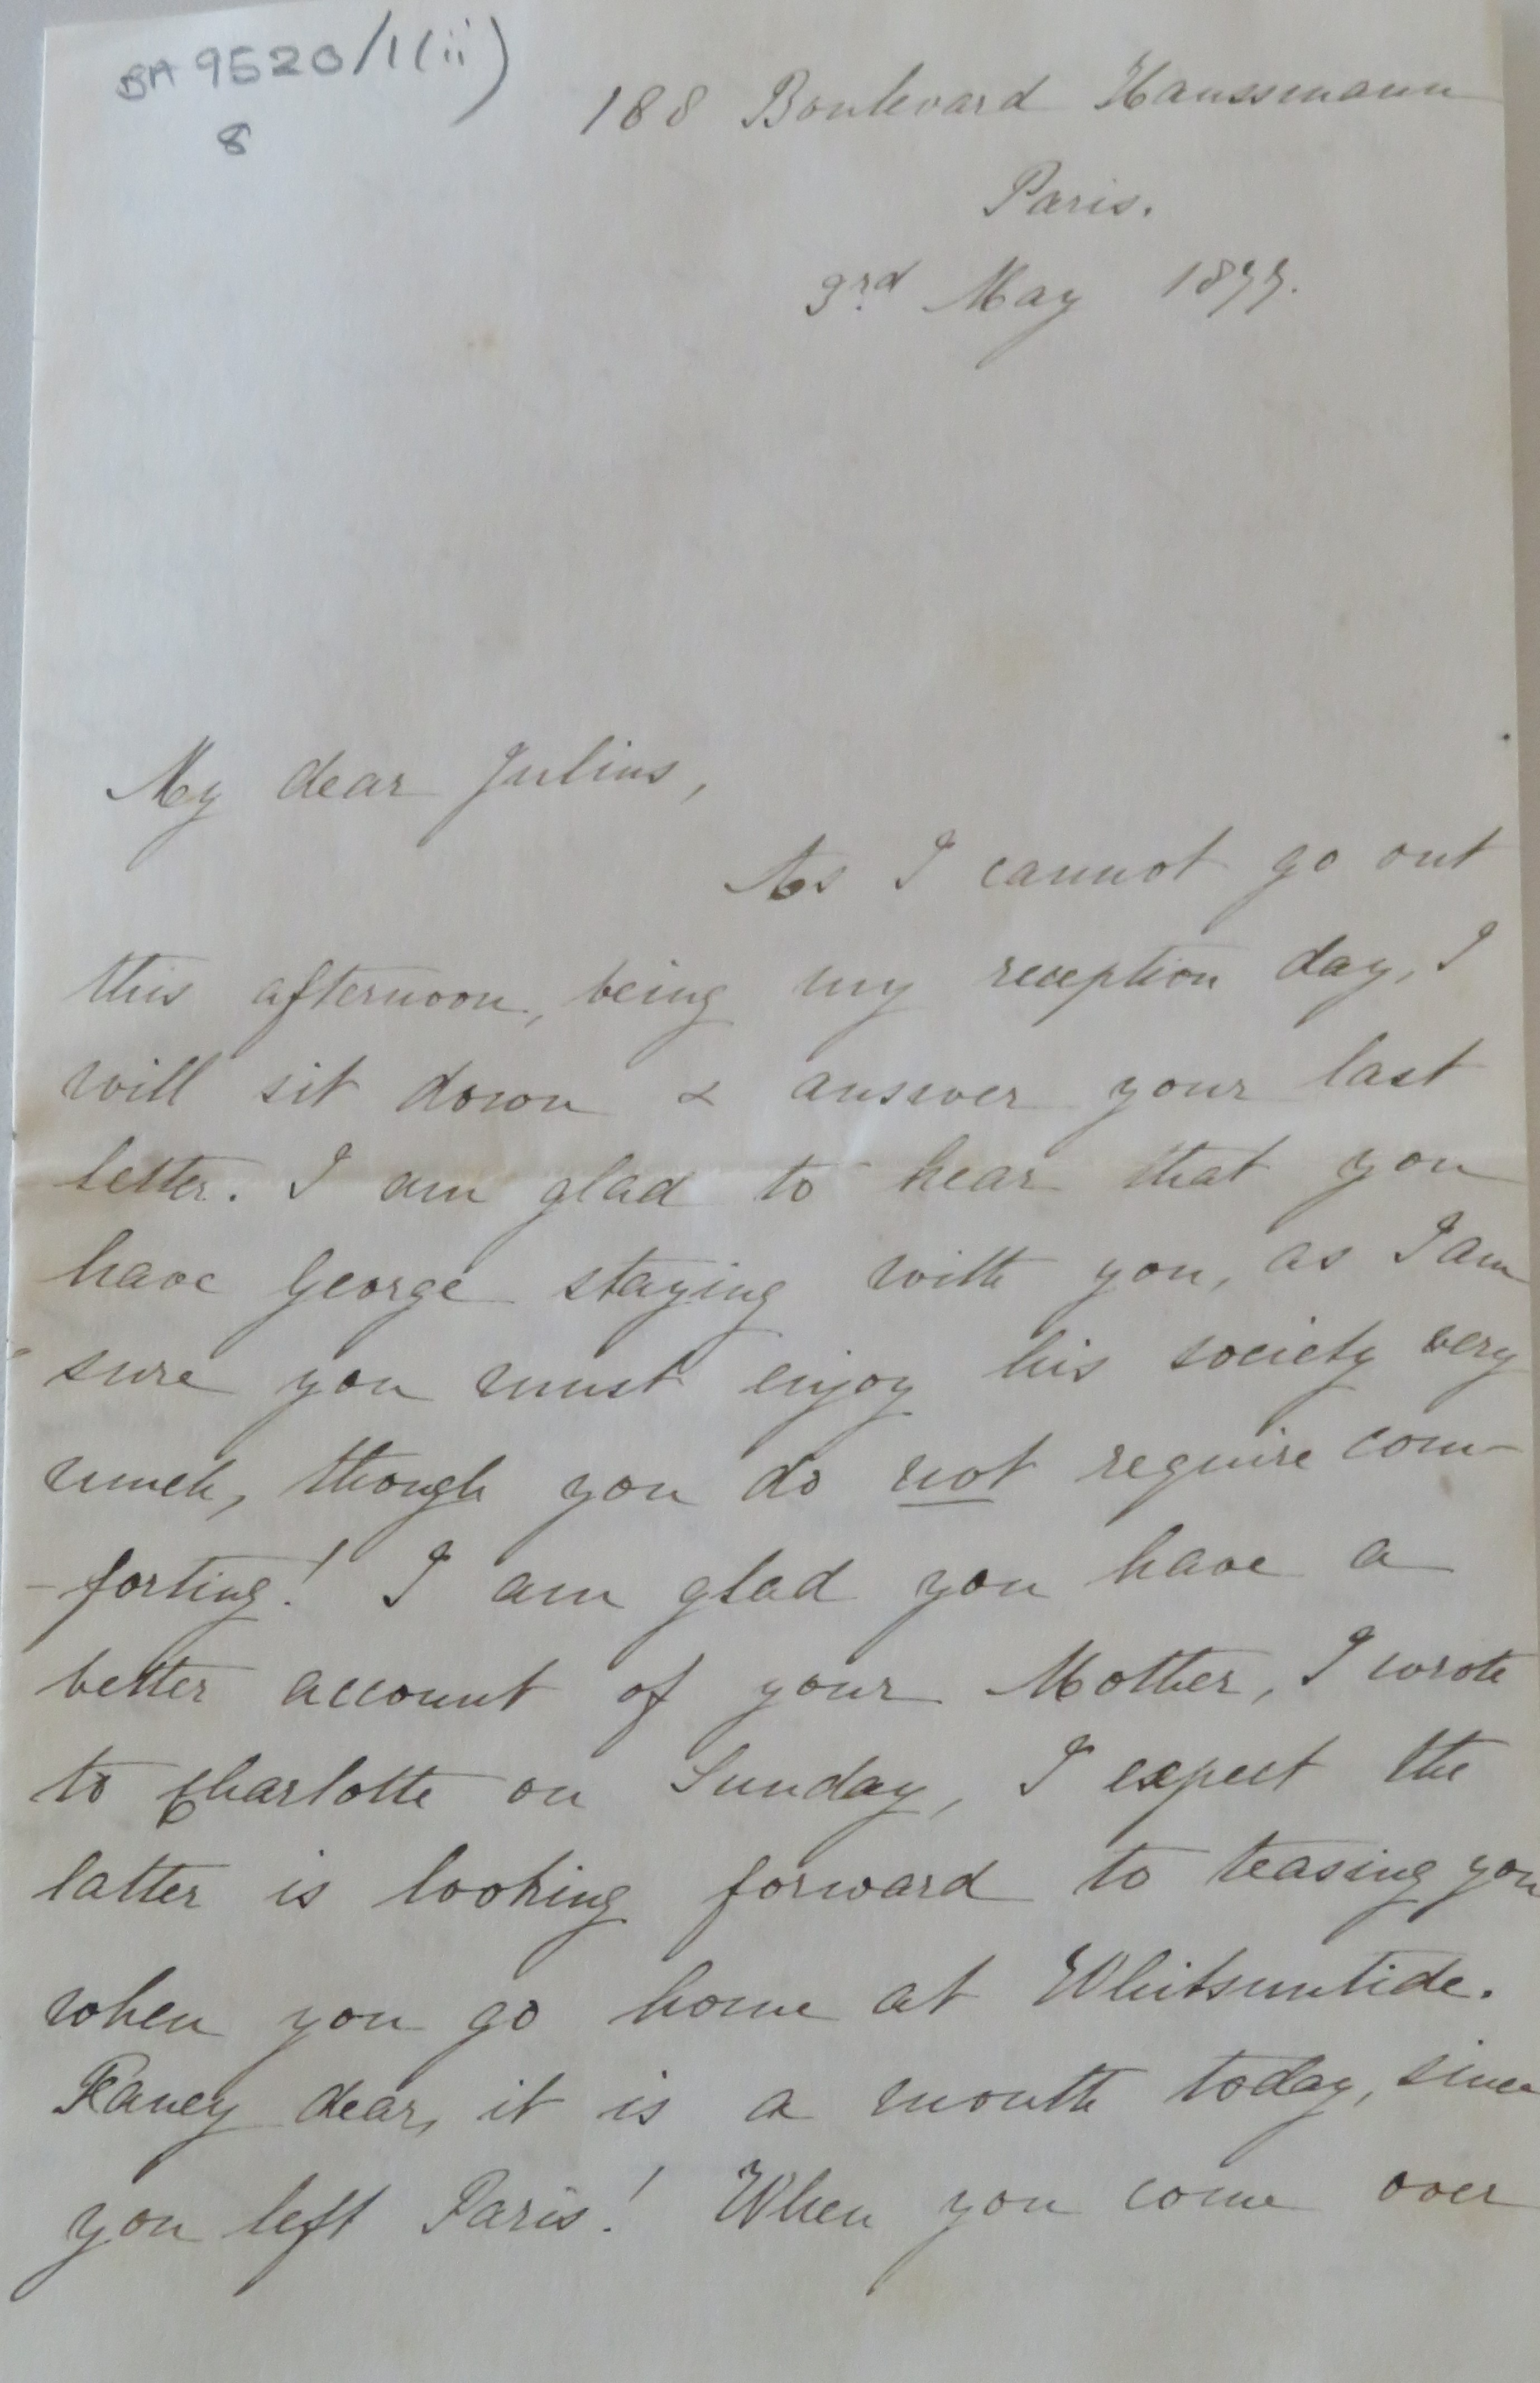 BA 9520/1(ii)
8
188 Boulevard Haussmann
Paris.
3rd May 1877.
My dear Julius,
As I cannot go out
this afternoon, being my reception day, I
will sit down & answer your last
letter. I am glad to hear that you
have George staying with you, as I am
sure you must enjoy his society very
much, though you do not require com-
-forting! I am glad you have a
better account of your Mother, I wrote
to Charlotte on Sunday, I expect the
latter is looking forward to teasing you
when you go home at Whitsuntide.
Fancy dear, it is a month today, since
you left Paris! When you come over